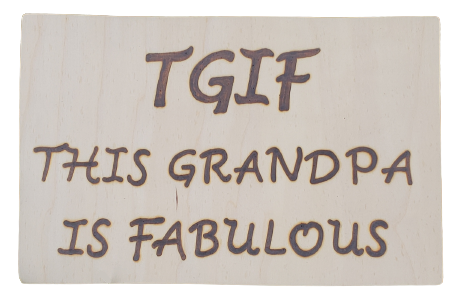 TGIF
THIS GRANDPA
IS FABULOUS